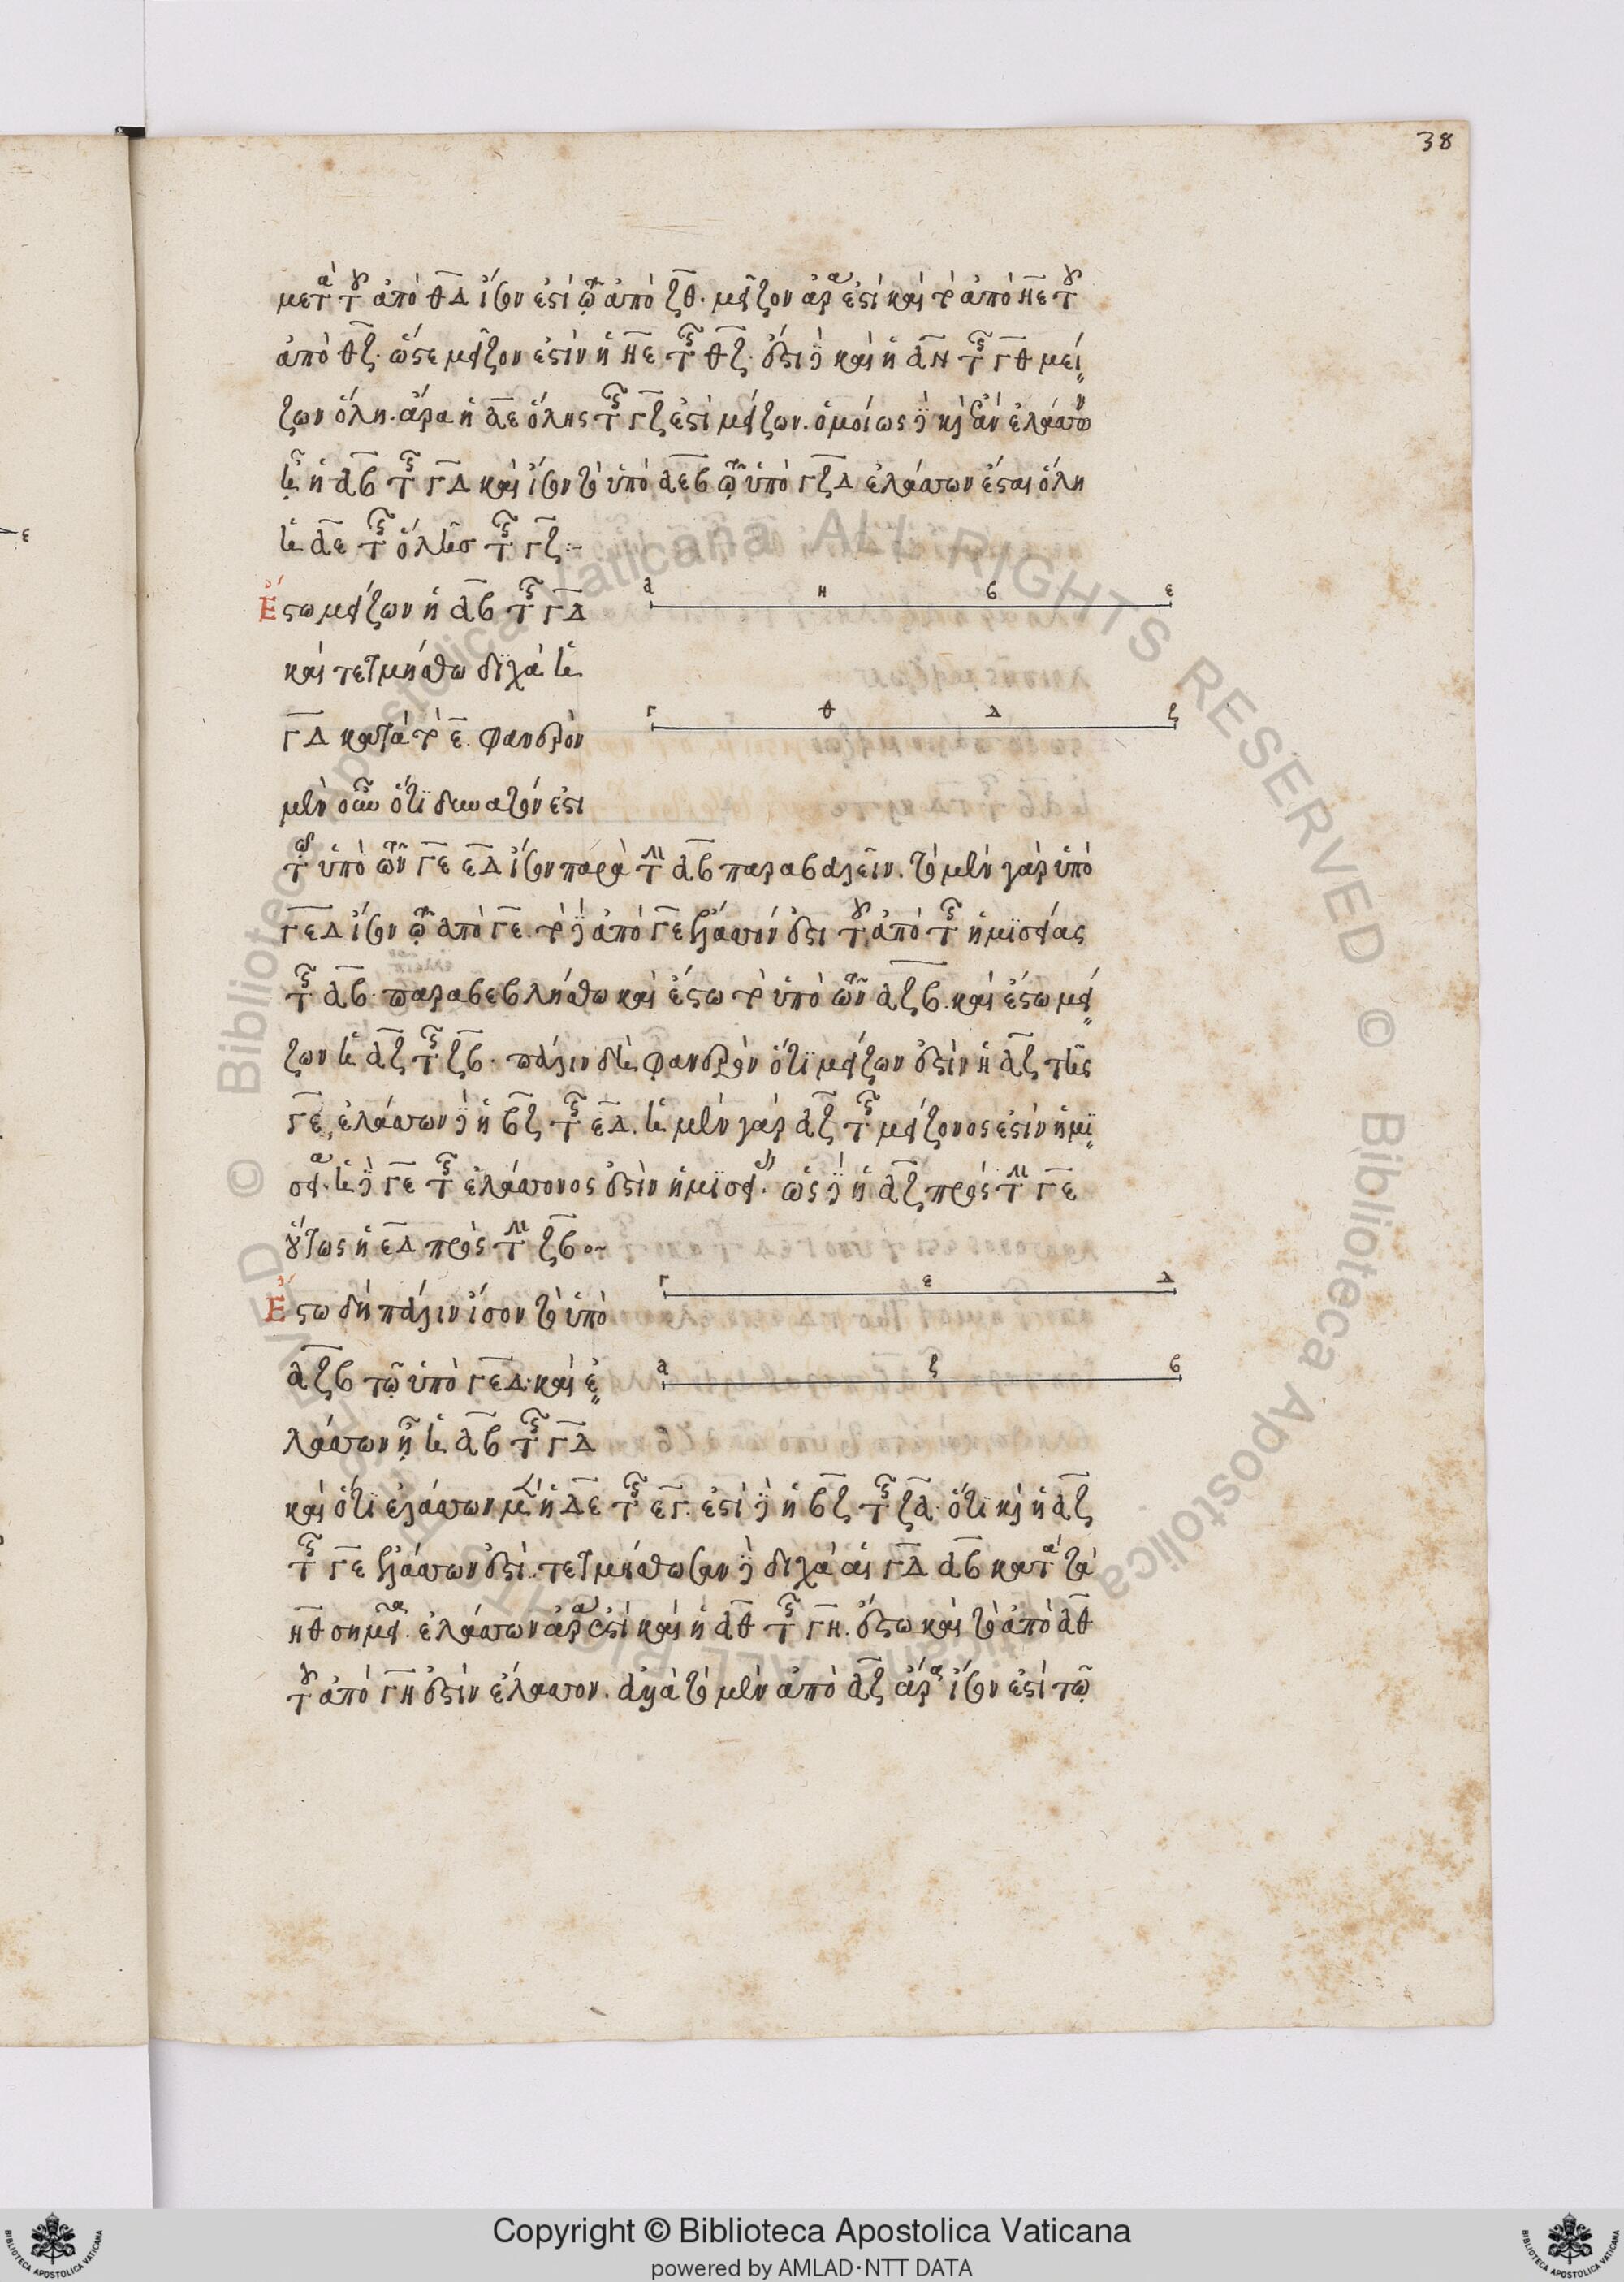 38
μετὰ τοῦ ἀπὸ θδ ἴσον ἐστὶ τῷ ἀπὸ ζθ. μεῖζον ἄρα ἐστὶ καὶ τὸ ἀπὸ ηε τοῦ
ἀπὸ θζ. ὥστε μεῖζον ἐστὶν ἡ ηε τῆς θζ. ἔστι δὲ καὶ ἡ αη τῆς γθ μεί
ζων ὅλη. ἄρα ἡ αε ὅλης τῆς γζ ἐστὶ μείζων. ὁμοίως δὲ κἂν ἐλάττων
ᾖ ἡ αβ τῆς γδ καὶ ἴσον τὸ ὑπὸ αεβ τῷ ὑπὸ γζδ ἐλάττων ἔσται ὅλη
ἡ αε τῆς ὅλης τῆς γζ:~
Ἔστω μείζων ἡ αβ τῆς γδ
καὶ τετμήσθω δίχα ἡ
γδ κατὰ τὸ ε. φανερὸν
μὲν οὖν ὅτι δυνατόν ἐστι
τῷ ὑπὸ τῶν γε εδ ἴσον παρὰ τὴν αβ παραβαλεῖν. τὸ μὲν γὰρ ὑπὸ
γεδ ἴσον τῷ ἀπὸ γε. τὸ δὲ ἀπὸ γε ἔλαττόν ἐστι τοῦ ἀπὸ τῆς ἡμισείας
τῆς αβ. παραβεβλήσθω καὶ ἔστω τὸ ὑπὸ τῶν αζβ. καὶ ἔστω μεί
ζων ἡ αζ τῆς ζβ. πάλιν δὴ φανερὸν ὅτι μείζων ἐστὶν ἡ αζ τῆς
γε, ἐλάττων δὲ ἡ βζ τῆς εδ. ἡ μὲν γὰρ αζ τῆς μείζονος ἐστὶν ἡμί
σεια. ἡ δὲ γε τῆς ἐλάττονος ἐστὶν ἡμίσεια. ὡς δὲ ἡ αζ πρὸς τὴν γε
οὕτως ἡ εδ πρὸς τὴν ζβ:~
Ἔστω δὴ πάλιν ἴσον τὸ ὑπὸ
αζβ τῷ ὑπὸ γεδ. καὶ ἐ
λάττων ᾖ ἡ αβ τῆς γδ
καὶ ὅτι ἐλάττων μὲν ἡ δε τῆς εγ. ἐστὶ δὲ ἡ βζ τῆς ζα. ὅτι καὶ ἡ αζ
τῆς γε ἐλάττων ἐστί. τετμήσθωσαν δὲ δίχα αἱ γδ αβ κατὰ τὰ
ηθ σημεῖα. ἐλάττων ἄρα ἐστὶ καὶ ἡ αθ τῆς γη. ἔστω καὶ τὸ ἀπὸ αθ
τοῦ ἀπὸ γη ἐστὶν ἔλαττον. ἀλλὰ τὸ μὲν ἀπὸ αζ ἄρα ἴσον ἐστὶ τῷ
α η β ε
γ θ δ ζ
γ ε δ
α ζ β
Copyright © Biblioteca Apostolica Vaticana
powered by AMLAD·NTT DATA